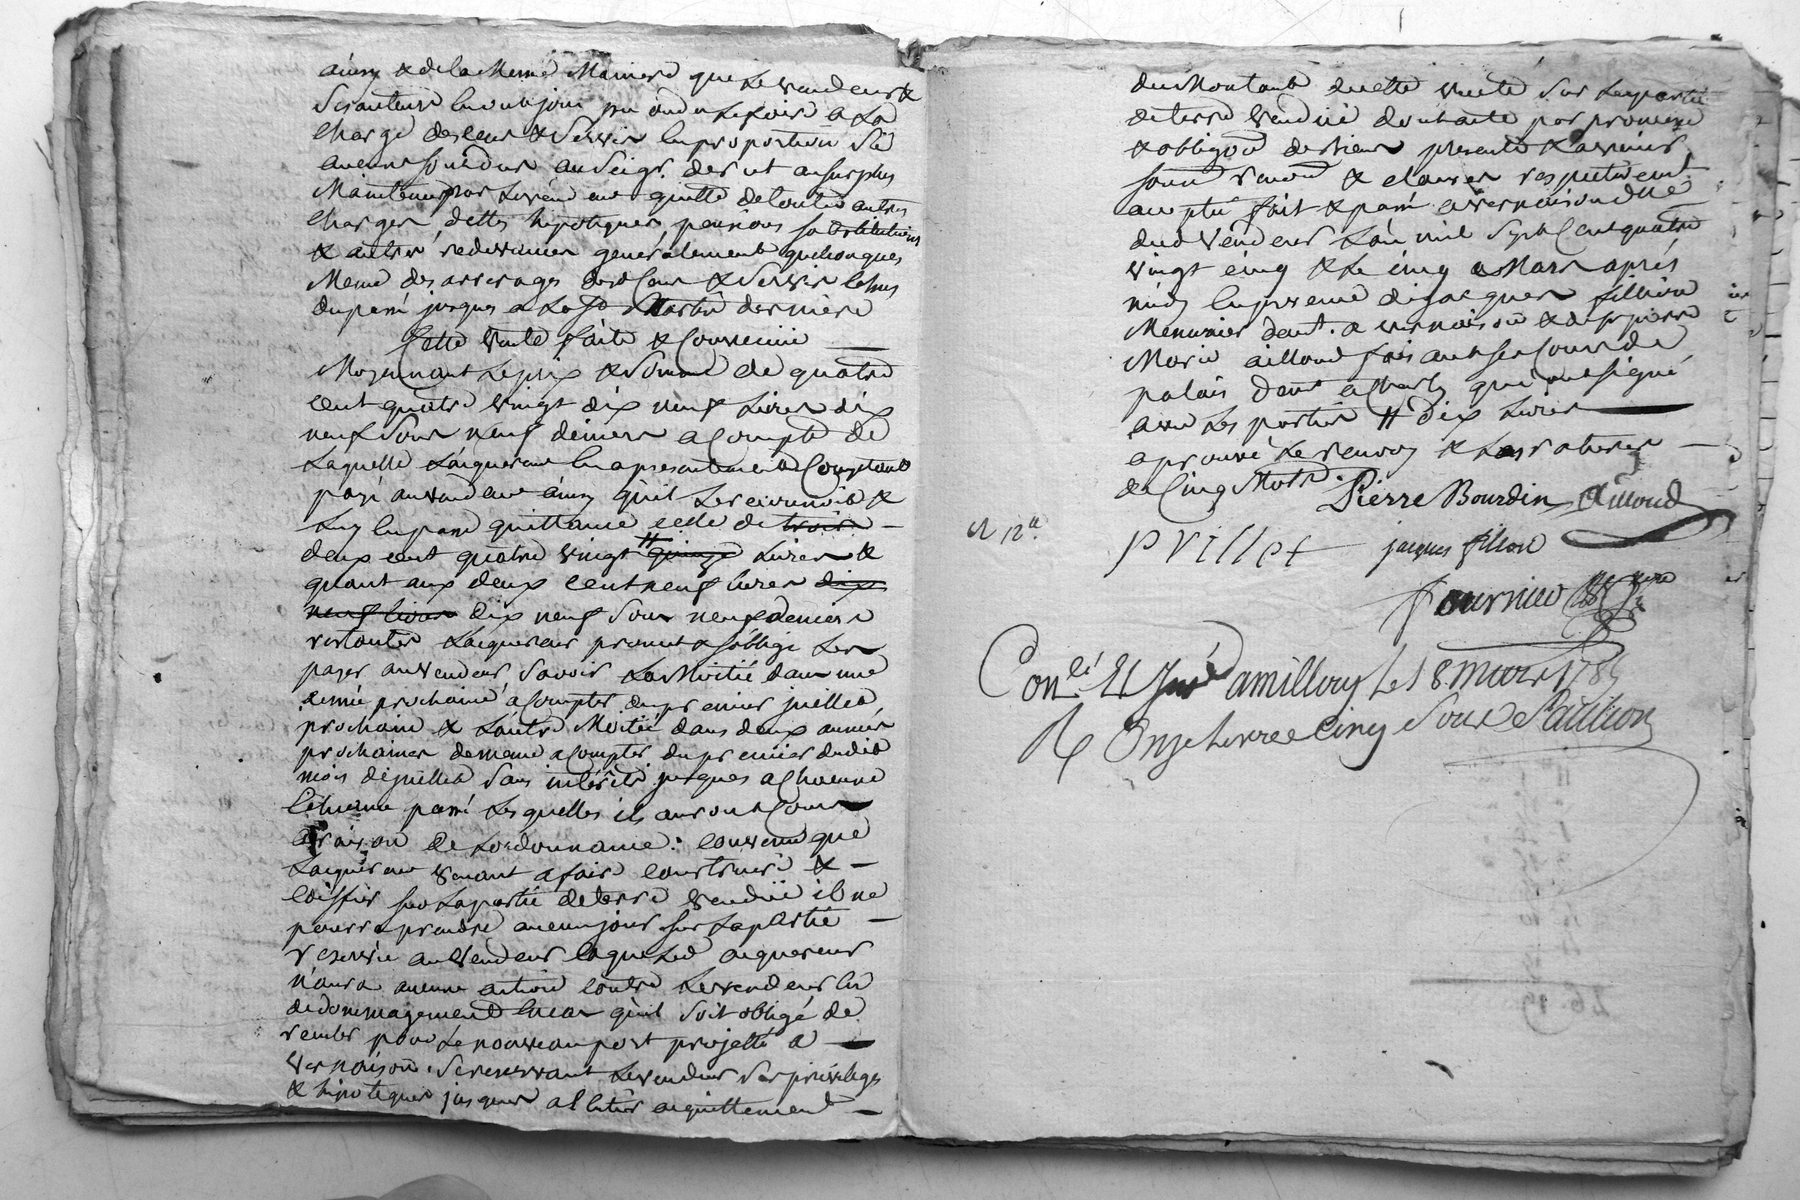 ainsy & de la meme maniere que le vendeur &
Ses auteurs en ont jouy pu ou du le faire a la
charge des cens & servis en proportion s'il
aucuns sont dus au Seigr. der. et au surplus
maintenus par le vendeur quitte de toutes autres
charges, dettes hipoteques, pensions substitutions
& autres redevances generalement quelconques
meme des arrerages desd. cens & servis echus
du passé jusques a la St Martin derniere
Cette vente faite & convenue
Moyennant le prix & somme de quatre
cent quatre vingt dix neuf livres dix
neuf sous neuf deniers a compte de
laquelle l'acquereur en a presentement & comptant
payé au vendeur ainsy qu'il le reconnoit &
luy en passe quittance celle de trois
deux cent quatre vingt # quinze livres &
quant aux deux cent neuf livres dix
neuf livres dix neuf sous neuf deniers
restantes l'acquereur promet & s'oblige les
payer au vendeur, savoir la moitié dans une
année prochaine a compter du premier juillet
prochain & l'autre moitié dans deux années
prochaines de meme a compter du premier dudit
mois de juillet sans interets jusques a chacune
echeance passé lesquelles ils auront cours
a raison de l'ordonnance: convenu que
l'acquereur venant a faire construire &
ediffier sur la partie de terre vendue il ne
pourra prendre aucun jour sur la partie
reservée au vendeur laquelled acquereur
n'aura aucune action contre le vendeur en
dedommagement en cas qu'il soit obligé de
pour le nouveau port projetté a
vernaison. Se reservant le vendeur ses privileges
& hipoteques jusques a l'entier acquittement
du montant de cette vente sur la partie
de terre vendue dont acte par promesse
& obligaon de biens presents & avenir
soum renon & clauses respectivemt
accepté fait & passé a vernaison
dud vendeur l'an mil sept cent quatre
vingt cinq & le cinq Mars après
midy en presence de jacques fillion
Menuisier demt. a vernaison & de sr pierre
Marie ailloud faisant ses cours de
palais demt a charly qui ont signé
avec les parties # dix livres
aprouvé le renvoy & les ratures
de cinq mots.
Pierre Bourdin ailloud
P villet jacques fillion
fournier
Conlé & Jnsé a millery le 18 mars 1785
R Onze livres cinq Sous Paillion